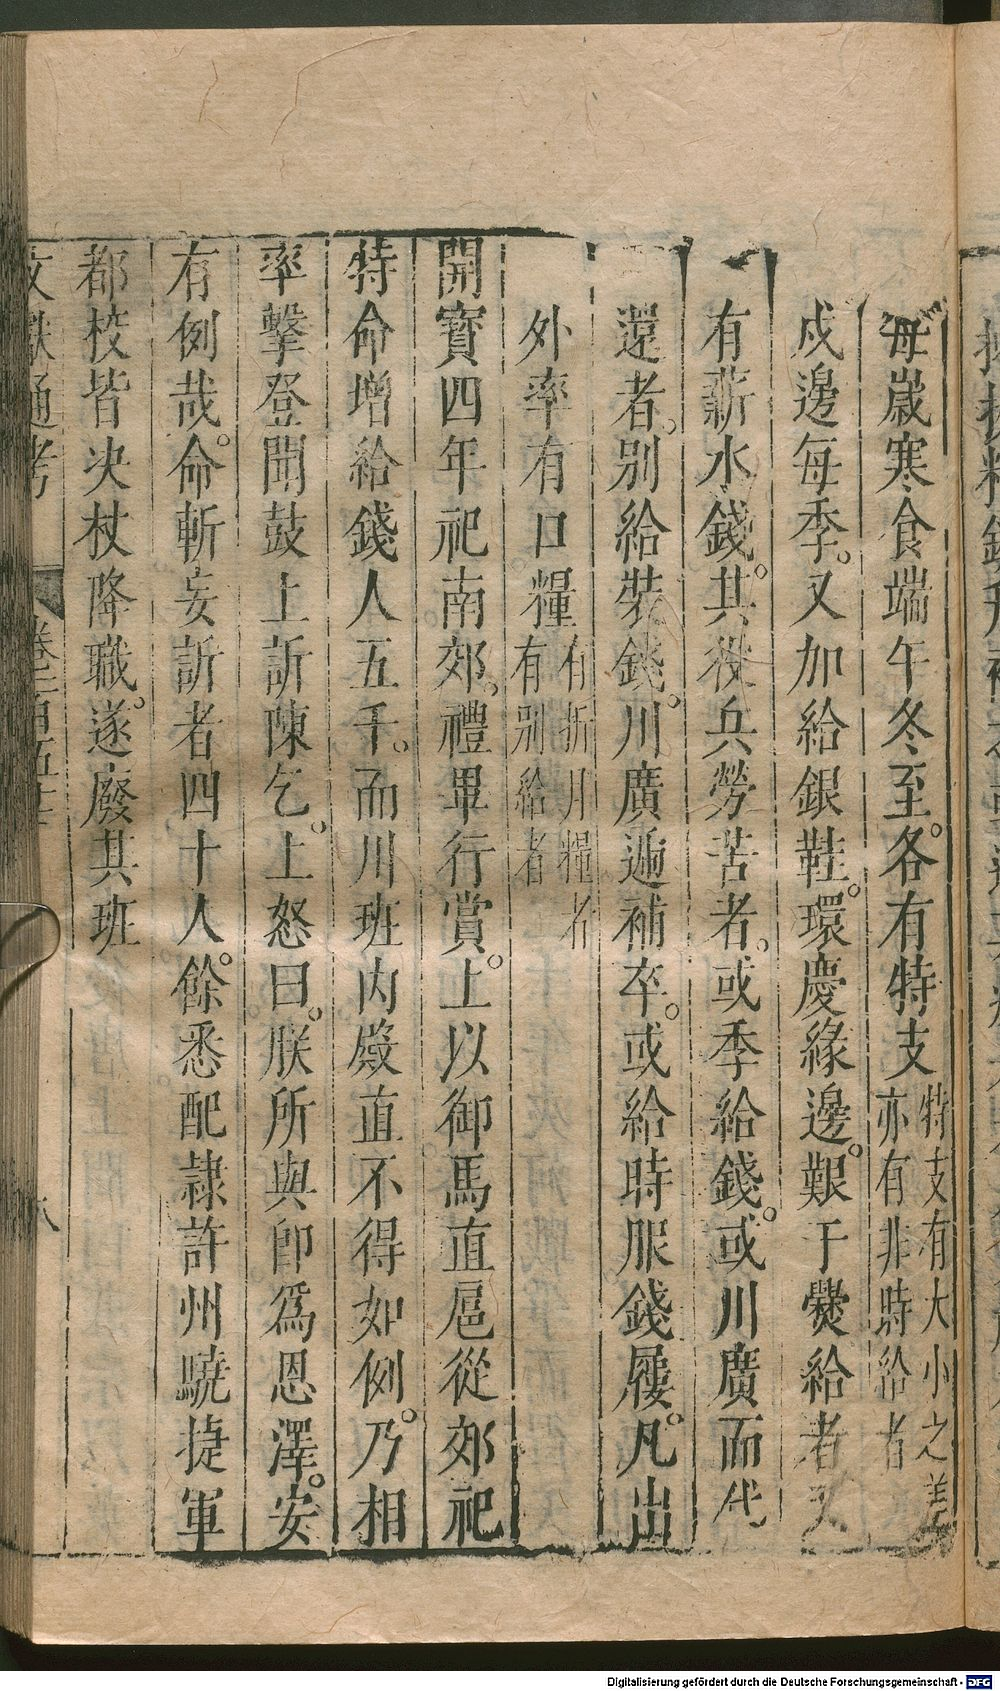 每歲寒食端午冬至。各有特支
特支有大小之差
亦有非時給者
戍邊每季。又加給銀鞋。環慶緣邊。艱于爨給者又
有薪水錢。其役兵勞苦者。或季給錢。或川廣而代
還者。別給裝錢。川廣遞補卒。或給時服錢屨。凡出
外率有口糧
有折月糧者
有別給者
開寶四年祀南郊。禮畢行賞。上以御馬直扈從郊祀
特命增給錢人五千。而川班內殿直不得如例。乃相
率擊登聞鼓上訴陳乞。上怒曰。朕所與即爲恩澤。安
有例哉。命斬妄訴者四十人。餘悉配隷許州驍捷軍
都校皆决杖降職。遂廢其班
文獻通考
卷三百五十